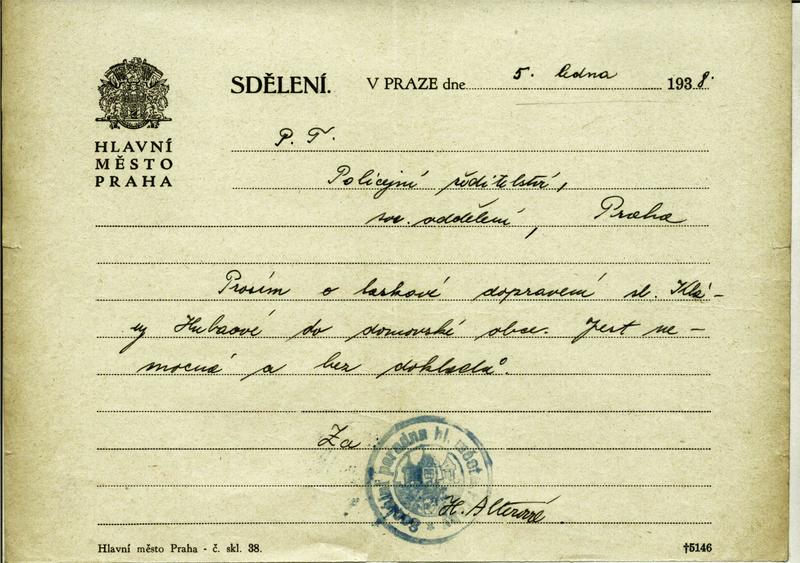 HLAVNÍ
MĚSTO
PRAHA
SDĚLENÍ. V PRAZE dne 5. ledna 1938.
P. T.
Policejní ředitelství,
soc. oddělení, Praha
Prosím o laskavé dopravení sl. Klá-
ry Hubaové do domovské obce. Jest ne-
mocná a bez dokladů.
Za
sociální poradna hl. měst
H. Alterová
Hlavní město Praha - č. skl. 38. †5146